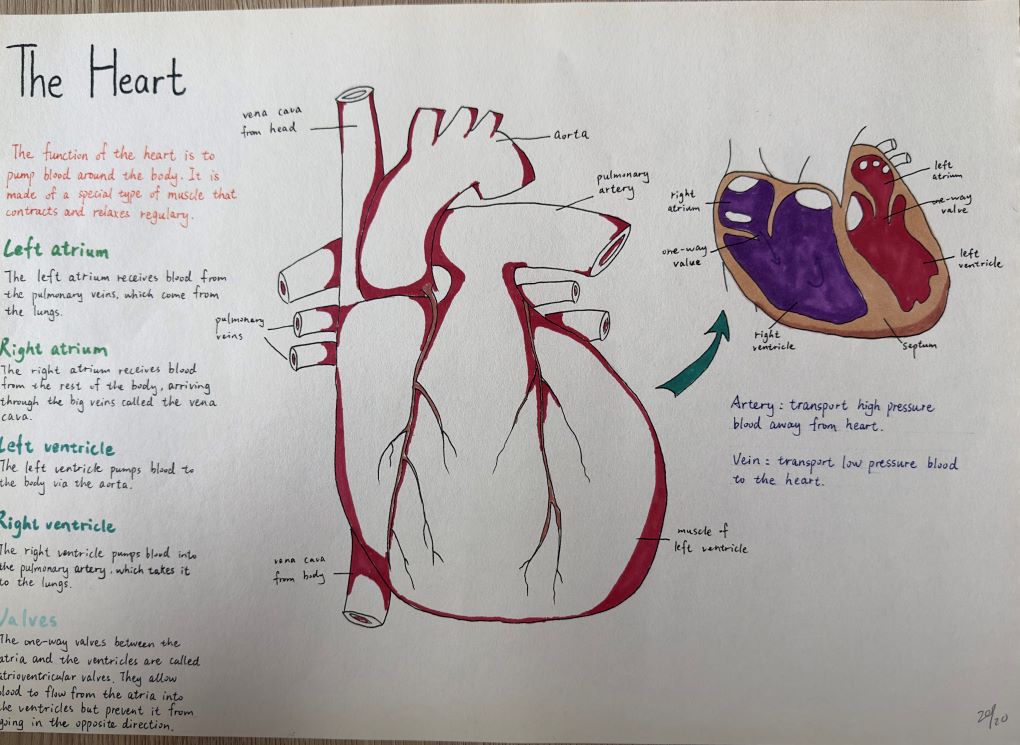 The Heart
The function of the heart is to
pump blood around the body. It is
made of a special type of muscle that
contracts and relaxes regulary.
Left atrium
The left atrium receives blood from
the pulmonary veins, which come from
the lungs.
Right atrium
The right atrium receives blood
from the rest of the body, arriving
through the big veins called the vena
cava.
Left ventricle
The left ventricle pumps blood to
the body via the aorta.
Right ventricle
The right ventricle pumps blood into
the pulmonary artery, which takes it
to the lungs.
Valves
The one-way valves between the
atria and the ventricles are called
atrioventricular valves. They allow
blood to flow from the atria into
the ventricles but prevent it from
going in the opposite direction.
vena cava
from head
aorta
pulmonary
artery
pulmonary
veins
vena cava
from body
muscle of
left ventricle
right
atrium
one-way
valve
left
atrium
one-way
valve
left
ventricle
right
ventricle
septum
Artery: transport high pressure
blood away from heart.
Vein: transport low pressure blood
to the heart.
20/20